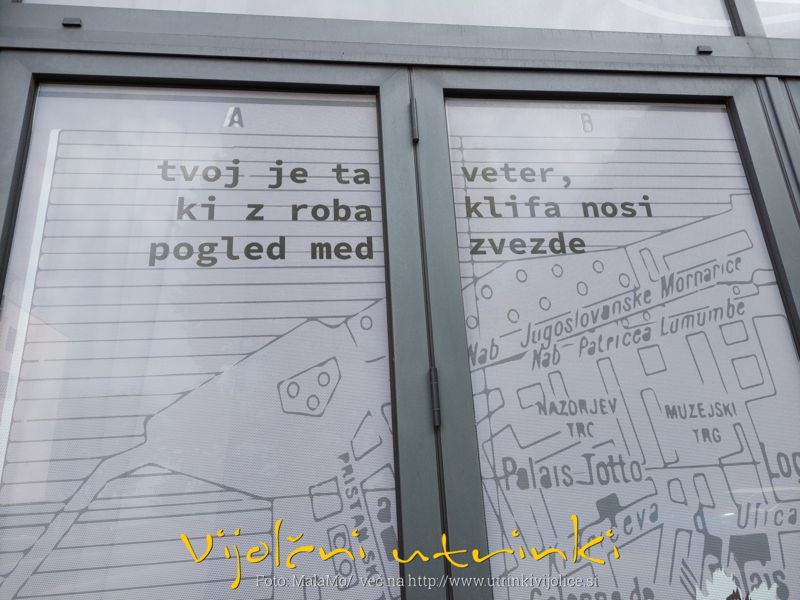 A B
tvoj je ta veter,
ki z roba klifa nosi
pogled med zvezde
Nab Jugoslovanske Mornarice
Nab Patricea Lumumbe
NAZORJEV
TRC
MUZEJSKI
TRG
Palais Totto
PRISTAN
Ulica
Vijolčni utrinki
Foto: MalaMo/ več na http://www.utrinkivijolice.si